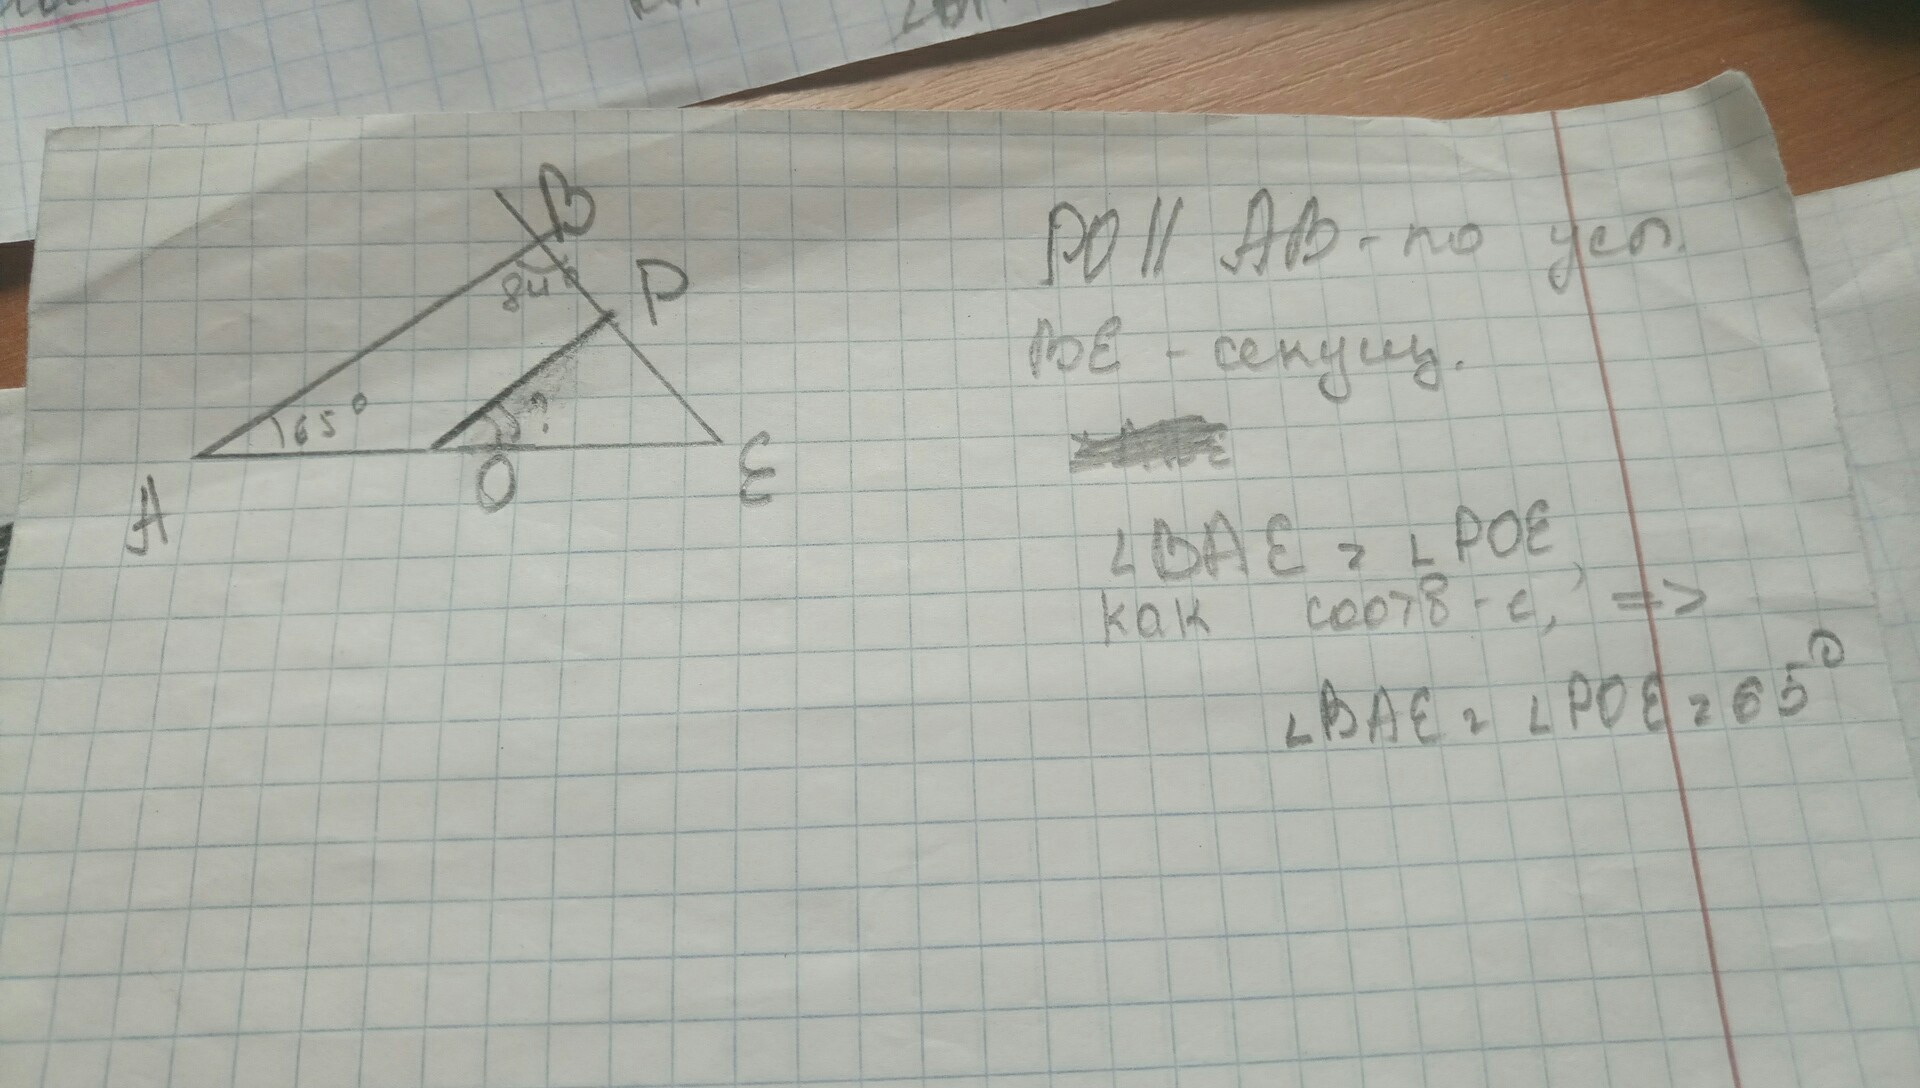 B
84°
P
65°
?
A
O
E
PO || AB - по усл.
BE - секущ.
∠BAE = ∠POE,
как соотв-е, =>
∠BAE = ∠POE = 65°